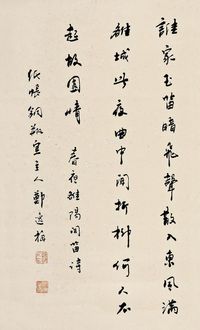 誰家玉笛暗飛聲散入東風滿
雒城此夜曲中聞折柳何人不
起故園情 春夜雒陽聞笛詩
紙帳銅瓶室主人鄭逸梅